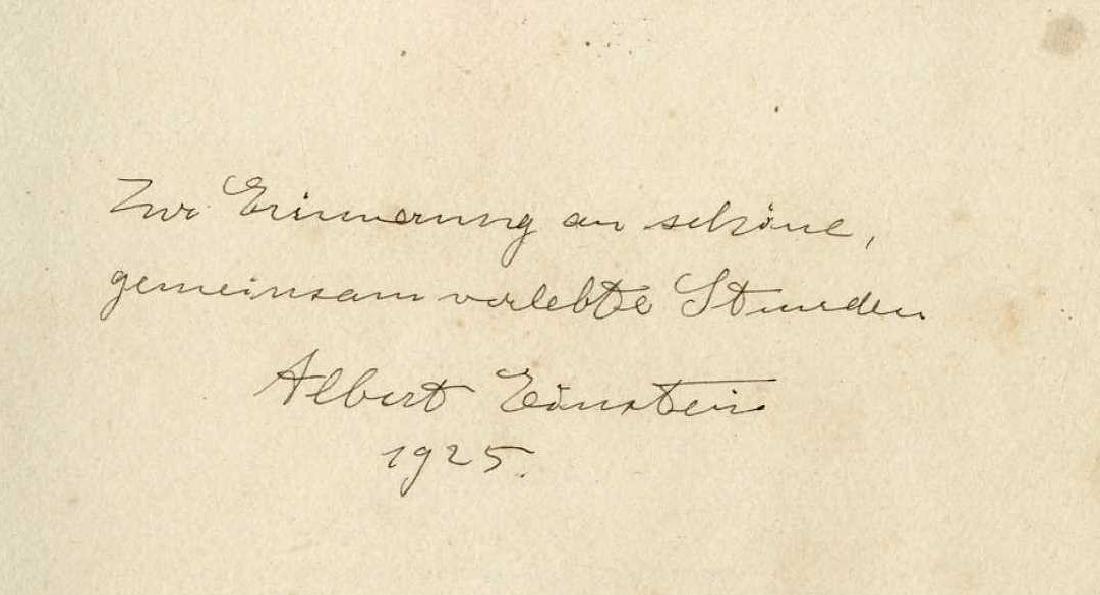 Zur Erinnerung an schöne,
gemeinsam verlebte Stunden
Albert Einstein
1925.